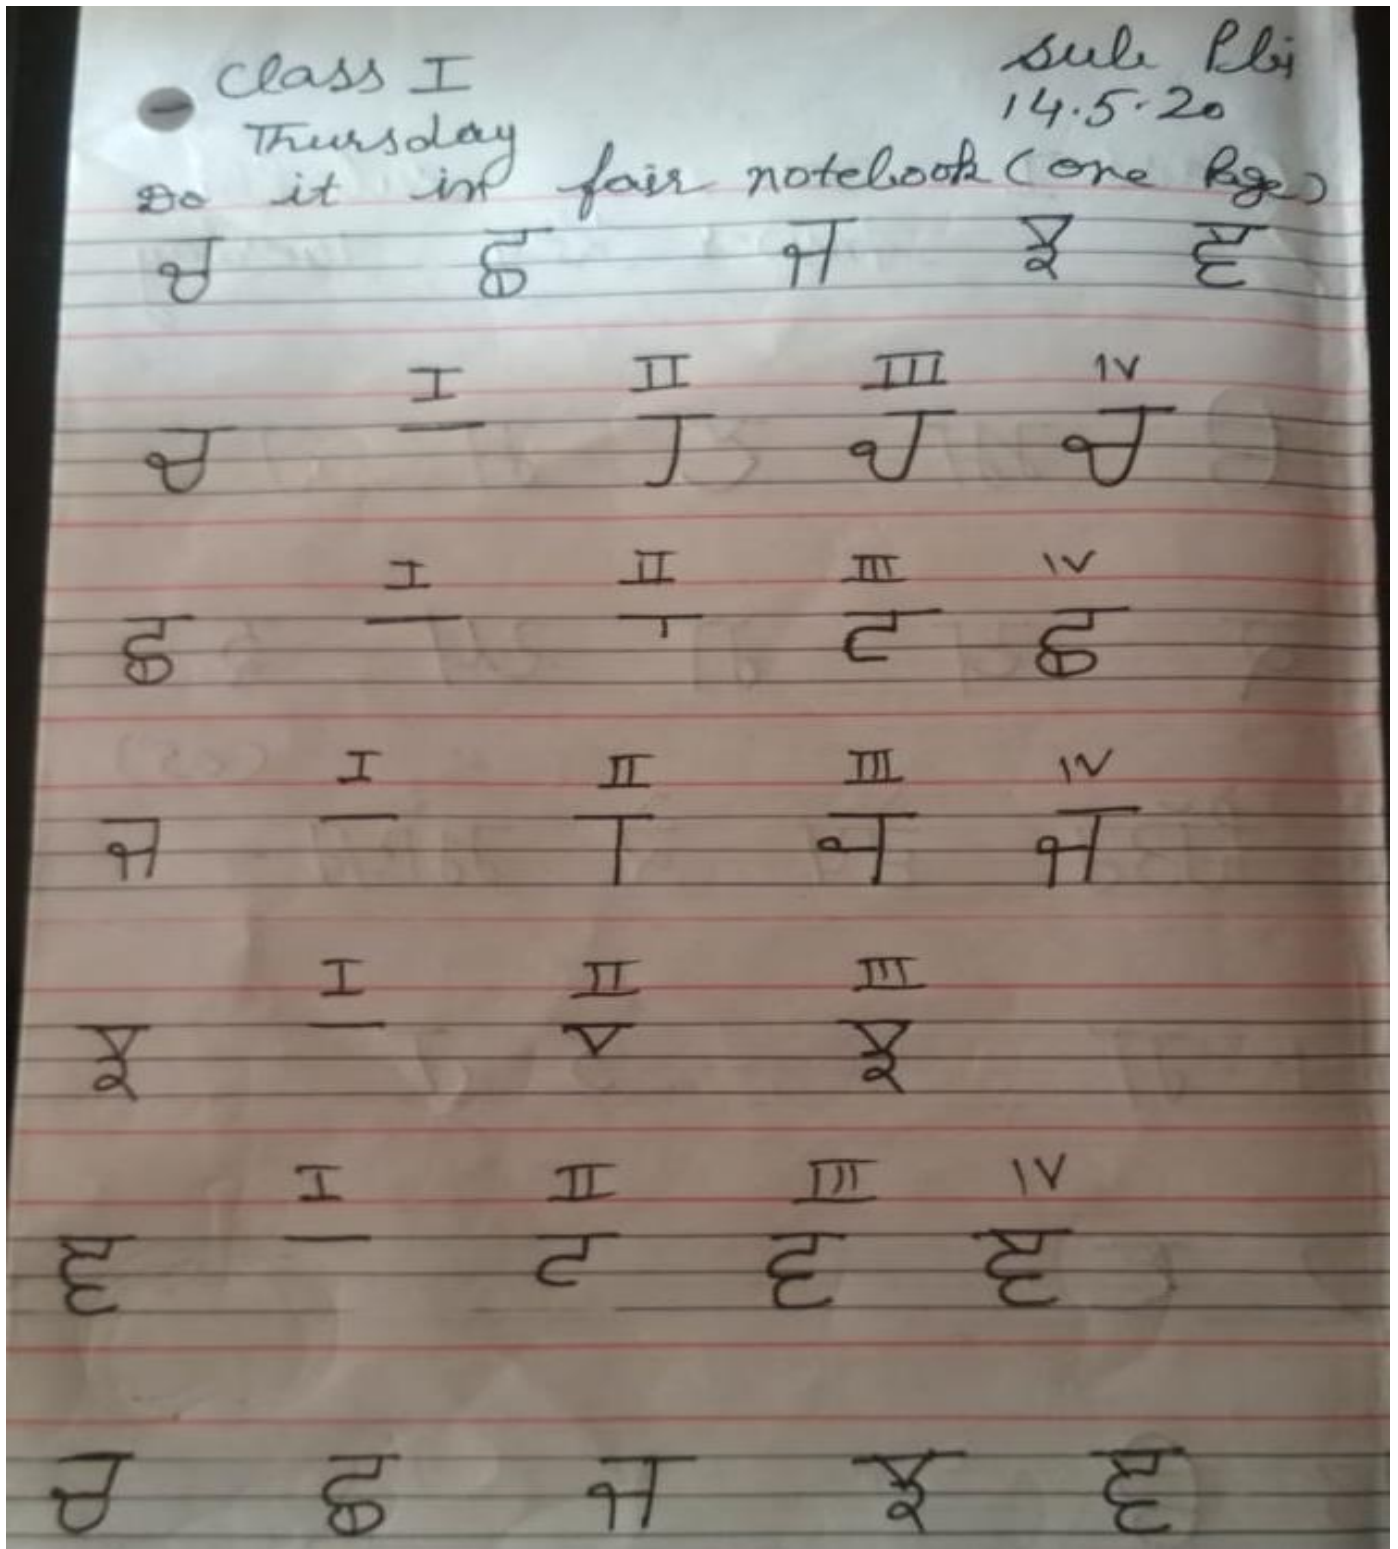 Class I
sub Pbi
Thursday
14.5.20
Do it in fair notebook (one Page)
ਚ ਛ ਜ ਝ ਞ
I II III IV
ਚ
I II III IV
ਛ ਛ
I II III IV
ਜ ਜ
I II III
ਝ ਝ
I II III IV
ਞ ਞ
ਚ ਛ ਜ ਝ ਞ